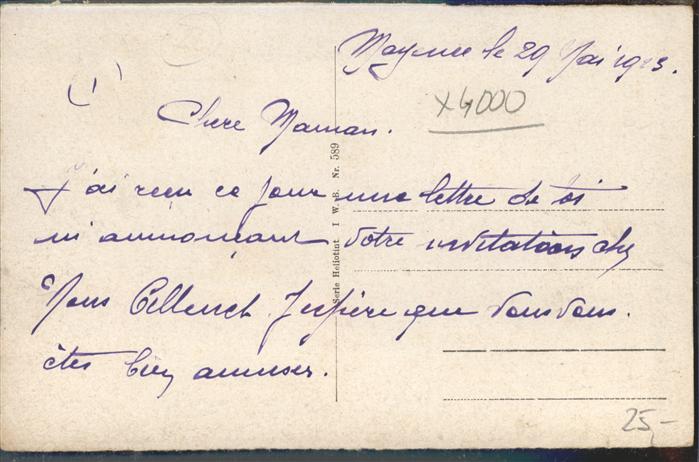 Mayence le 29 Mai
(1)
x4000
Chere Maman.
J'ai reçu ce jour une lettre de toi
m'annonçant votre invitations chez
J'espère que vous vous
êtes bien amuser.
Serie Heliotint I W. B. Nr. 589
25,-